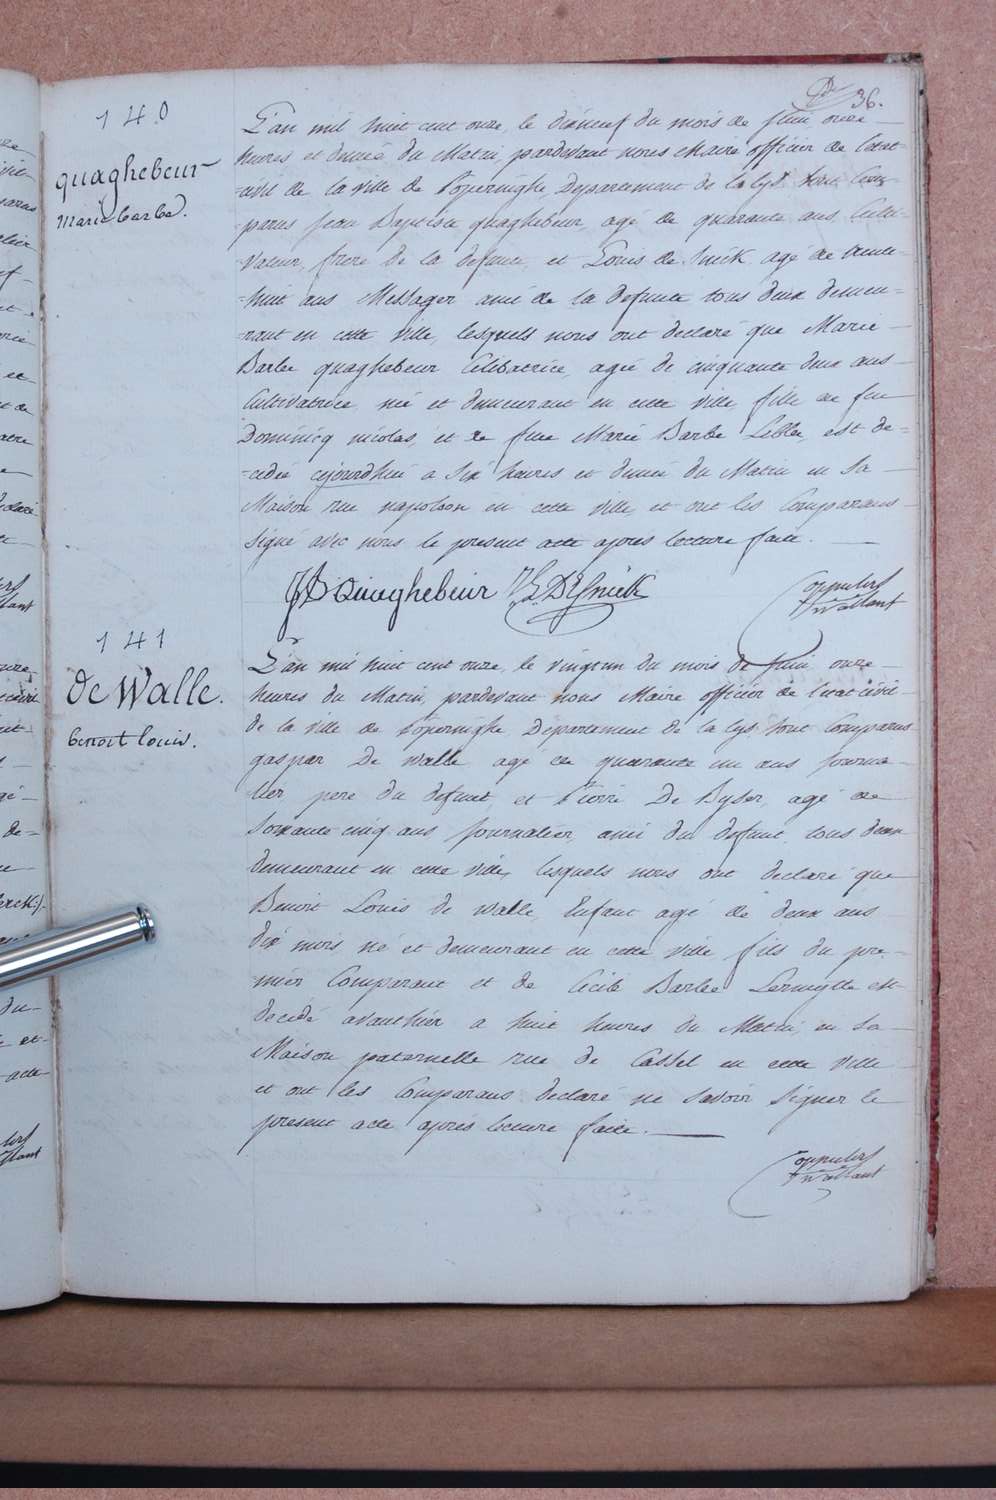 36.
140
quaghebeur
Marie barbe.
L'an mil huit cent onze, le dixneuf du mois de Juin onze
heures et demie du Matin, pardevant nous Maire officier de l'etat-
-civil de la ville de Poperinghe, Departement de la Lys sont Com-
-parus Jean Baptiste quaghebeur, agé de quarante ans, Culti-
-vateur, frere de la defunte, et Louis de Snick agé de trente-
-huit ans Messager ami de la defunte tous deux demeu-
-rant en cette ville, lesquels nous ont declaré que Marie
Barbe quaghebeur Celibatrice, agée de cinquante deux ans
Cultivatrice, né et demeurant en cette ville, fille de feu
Dominicq nicolas, et de feue Marie Barbe Leblee, est de=
-cedée cejourdhui a six heures et demie du Matin en sa
Maison rue napoleon en cette ville, et ont les Comparans
signé avec nous le present acte après lecture faite.
JB Quaghebeur L DeSnick
141
de Walle.
benoit louis.
L'an mil huit cent onze, le vingtun du mois de Juin, onze
heures du Matin, pardevant nous Maire officier de l'etat civil
de la ville de Poperinghe, Département de la Lys sont Comparus
gaspar De walle agé de quarante un ans Journa-
lier, pere du defunt, et Pierre De Byser, agé de
soixante cinq ans Journalier, ami du defunt, tous deux
demeurant en cette ville, lesquels nous ont declaré que
Benoit Louis de walle, Enfant agé de deux ans
dix mois, né et demeurant en cette ville fils du pre-
mier Comparant et de Cicile Barbe Lermytte est
decedé avanthier a huit heures du Matin, en sa
Maison paternelle rue de Cassel en cette ville
et ont les Comparans declaré ne savoir signer le
present acte après lecture faite.